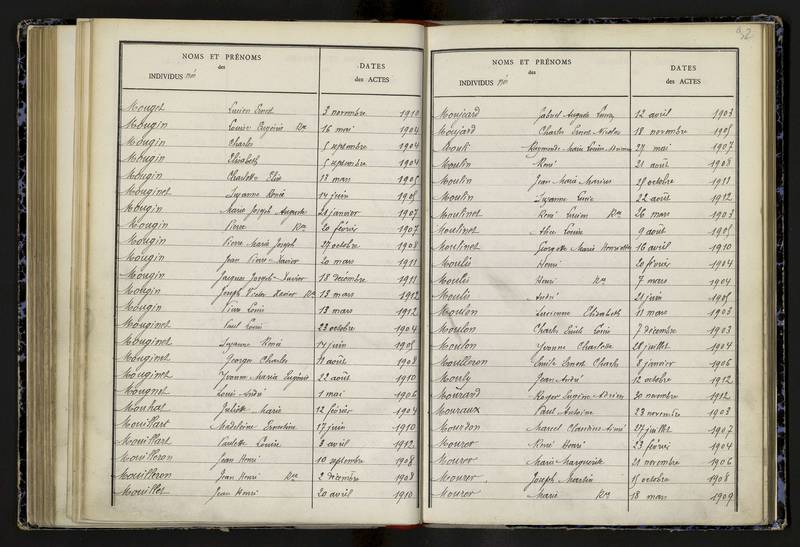 NOMS ET PRÉNOMS
des
INDIVIDUS nés
DATES
des ACTES
Mouget Lucien Ernest 3 novembre 1910
Mougin Louise Eugénie Rn 16 mai 1904
Mougin Charles 5 septembre 1904
Mougin Elisabeth 5 septembre 1904
Mougin Charlotte Elise 13 mars 1905
Mouginet Suzanne Renée 14 juin 1905
Mougin Marie Joseph Auguste 28 janvier 1907
Mougin Pierre Rn 20 février 1907
Mougin Pierre Marie Joseph 27 octobre 1908
Mougin Jean Pierre Xavier 20 mars 1911
Mougin Jacques Joseph Xavier 18 décembre 1911
Mougin Joseph Victor Xavier Rn 13 mars 1912
Mougin Pierre Louis 13 mars 1912
Mouginet Paul Louis 23 octobre 1904
Mouginet Suzanne Renée 14 juin 1905
Mouginet Georges Charles 11 août 1908
Mouginet Yvonne Marie Eugénie 22 août 1910
Mougnet Louis André 1 mai 1906
Mouhat Juliette Marie 12 février 1904
Mouillart Madeleine Ernestine 17 juin 1910
Mouillart Paulette Louise 3 avril 1912
Mouilleron Jean Henri 10 septembre 1908
Mouilleron Jean Henri Rn 2 décembre 1908
Mouillet Jean Henri 20 avril 1910
32
NOMS ET PRÉNOMS
des
INDIVIDUS nés
DATES
des ACTES
Moujeard Gabriel Auguste 12 avril 1903
Moujard Charles Ernest Nicolas 18 novembre 1905
Mouli Raymonde Marie Louise 27 mai 1907
Moulin René 21 août 1908
Moulin Jean Marie Marius 25 octobre 1911
Moulin Suzanne 22 août 1912
Moulinet René Lucien Rn 26 mars 1903
Moulinet Alice Louise 9 août 1905
Moulinet Georgette Marie Henriette 16 avril 1910
Moulis Henri 20 février 1904
Moulis Henri Rn 7 mars 1904
Moulis André 21 juin 1905
Moulon Lucienne Elisabeth 11 mars 1903
Moulon Charles Emile Louis 7 décembre 1903
Moulon Yvonne Charlotte 28 juillet 1904
Moulleron Emile Ernest Charles 8 janvier 1906
Mouly Jean André 12 octobre 1912
Mourard Roger Eugène Adrien 30 novembre 1912
Mouraux Paul Antoine 23 novembre 1903
Mourdon Marcel Claudius Aimé 27 juillet 1907
Mourer René Henri 23 février 1904
Mourer Marie Marguerite 21 novembre 1906
Mourer Joseph Martin 15 octobre 1908
Mourer Marie Rn 18 mars 1909